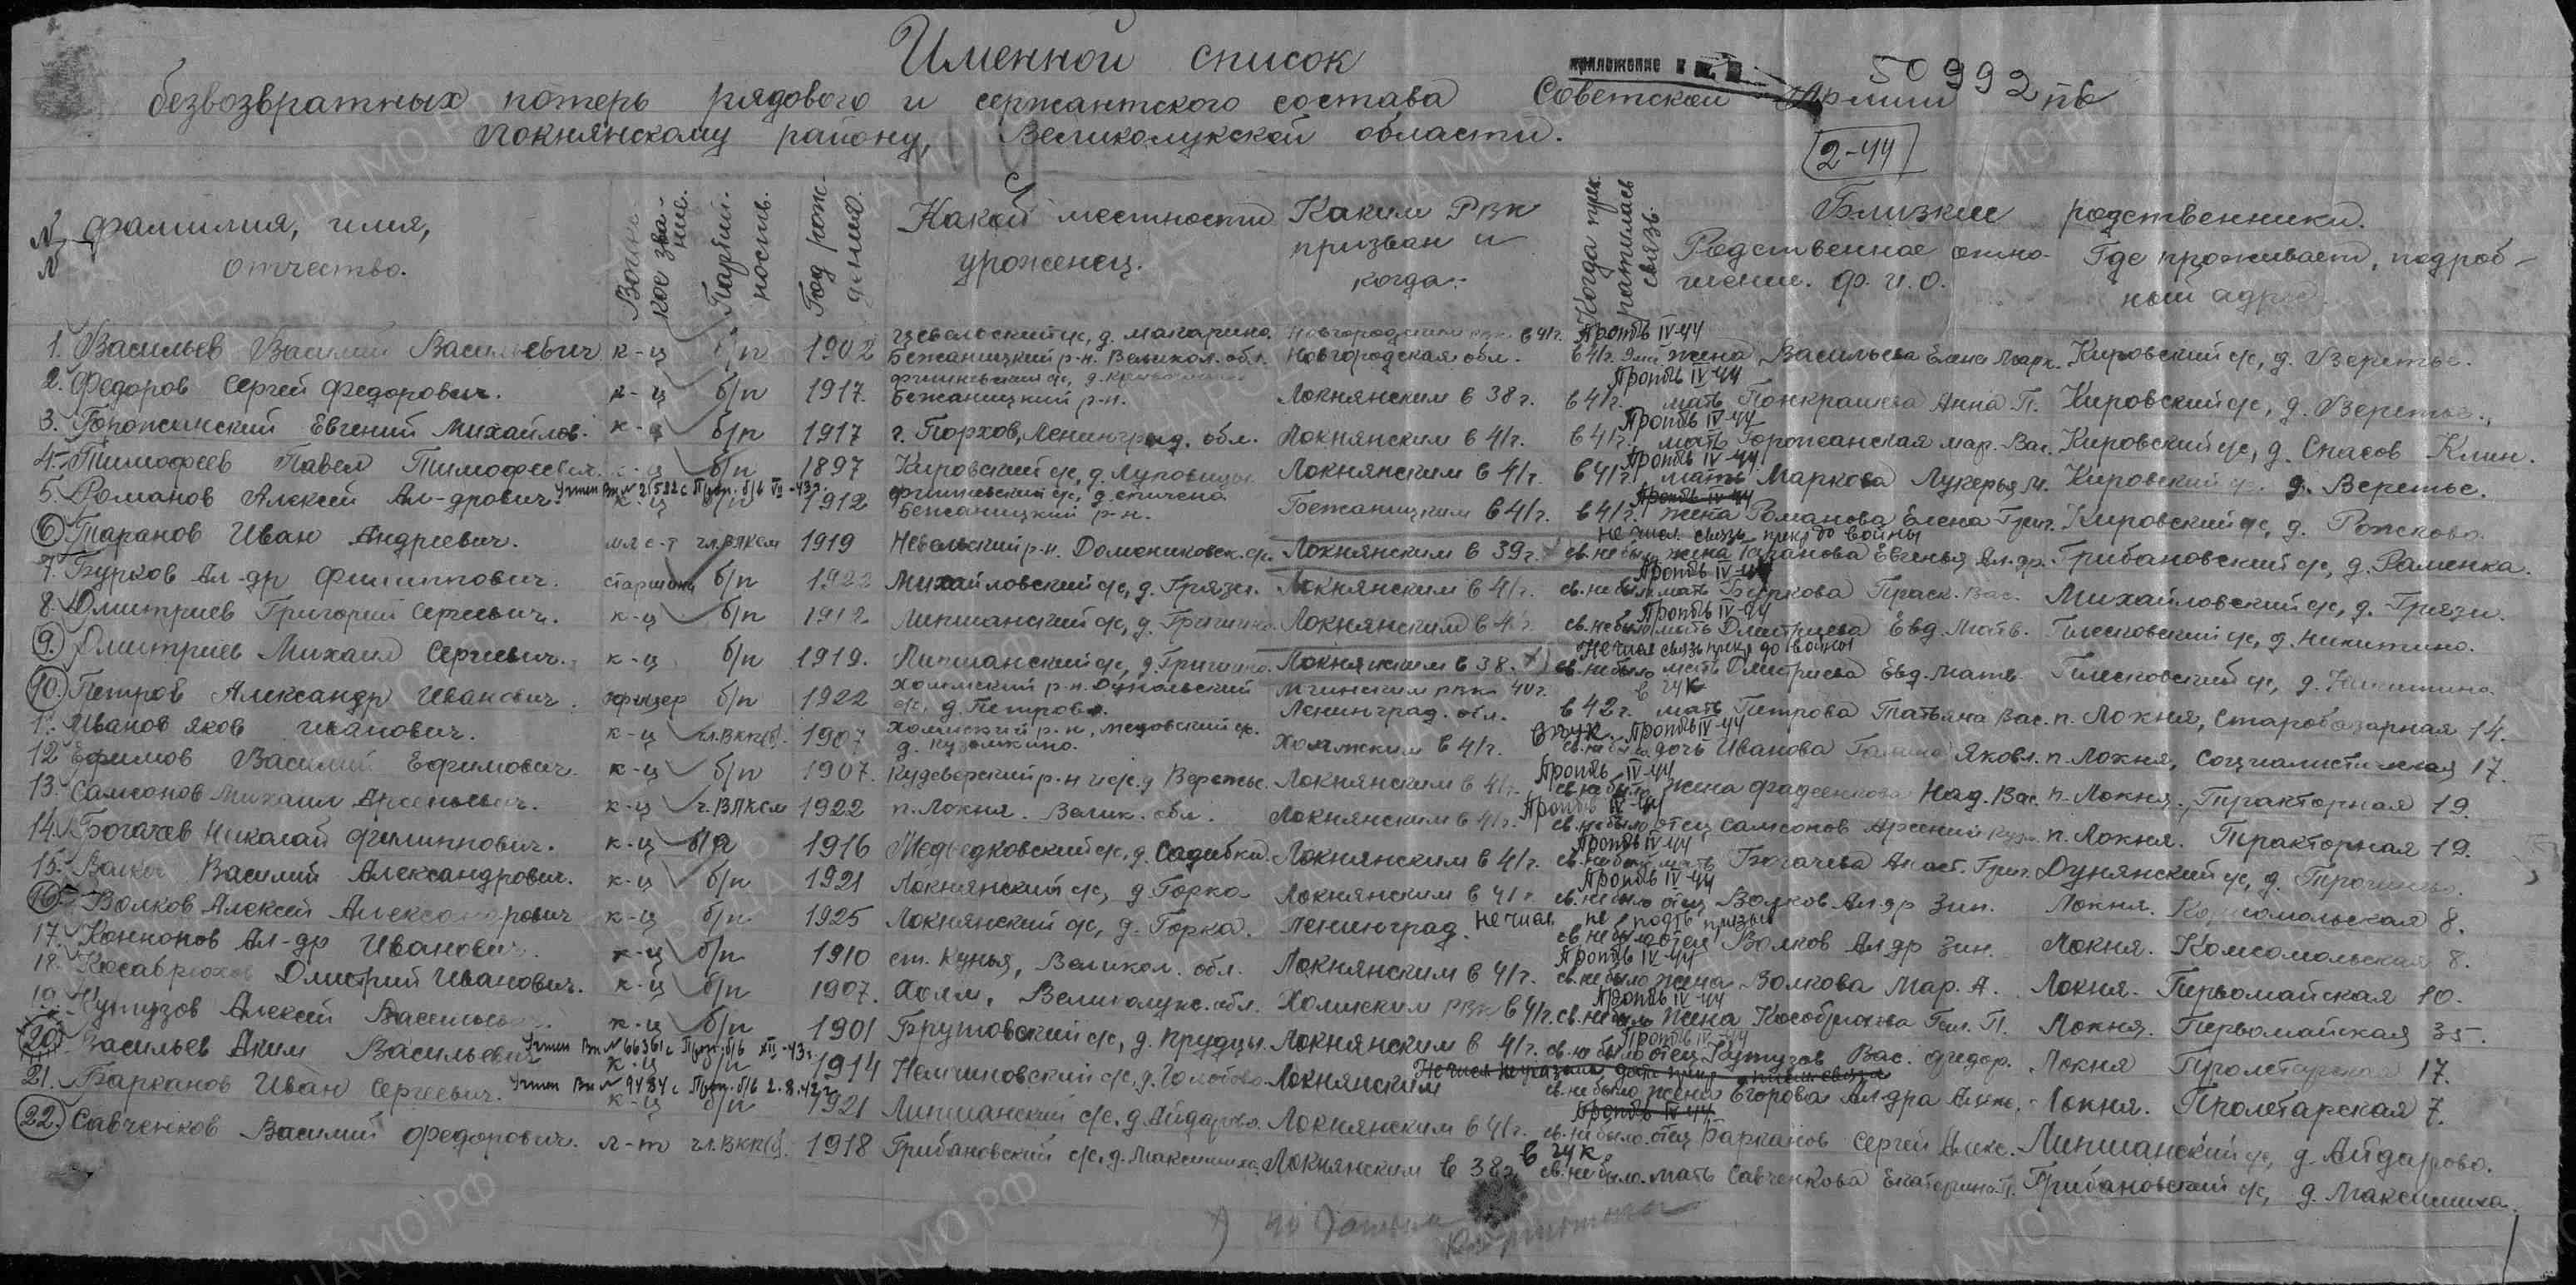 Именной список
приложение
50992 пв
безвозвратных потерь рядового и сержантского состава Советской Армии
Локнянскому району, Великолукской области.
2-44
№ Фамилия, имя, отчество.
Воинское звание.
Партийность.
Год рождения.
Какой местности уроженец.
Каким РВК призван и когда.
Когда прекратилась связь.
Близкие родственники.
Родственное отношение. Ф. И. О.
Где проживает, подробный адрес.
1. Васильев Василий Васильевич к-ц б/п 1902 д. Макарино. Бежаницкий р-н. Великол. обл. Новгородская обл. в 41г. Проп б/в IV-44 жена Васильева Елена Марк. Кировский с/с, д. Веретье.
2. Федоров Сергей Федорович. к-ц б/п 1917. Бежаницкий р-н. Локнянским в 38г. в 41г. Проп б/в IV-44 мать Панкрашева Анна П. Кировский с/с, д. Веретье.
3. Евгений Михайлов. к-ц б/п 1917 г. Порхов, Ленинград. обл. Локнянским в 41г. в 41г. Проп б/в IV-44 мать Мар. Вас. Кировский с/с, д. Спасов Клин.
4. Тимофеев Павел Тимофеевич к-ц б/п 1897 Кировский с/с, д. Локнянским в 41г. в 41г. Проп б/в IV-44 мать Маркова Лукерья М. Кировский с/с. д. Веретье.
5. Романов Алексей Ал-дрович. Учтен Вх № 21522с Проп. б/в VII-43г. к-ц б/п 1912 Бежаницкий р-н. Бежаницким в 41г. в 41г. Проп б/в IV-44 жена Романова Елена Григ. Кировский с/с, д. Рожково.
6. Таранов Иван Андреевич. мл с-т чл. ВЛКСМ 1919 Невельский р-н. Домениковск. с/с. Локнянским в 39г. Не числ. связь прекр до войны св. не было жена Таранова Евгенья Ал-др. Грибановский с/с, д. Раменка.
7. Бурков Ал-др Филиппович. старшина б/п 1922 Михайловский с/с, д. Грязи. Локнянским в 41г. Проп б/в IV-44 св. не было мать Буркова Праск. Вас. Михайловский с/с, д. Грязи.
8. Дмитриев Григорий Сергеевич. к-ц б/п 1912 Липшанский с/с, д. Гришино. Локнянским в 41г. Проп б/в IV-44 св. не было мать Дмитриева Евд. Матв. Плесковский с/с, д. Никитино.
9. Дмитриев Михаил Сергеевич. к-ц б/п 1919. Липшанский с/с, д. Гришино. Локнянским в 38. Не числ связь прекр до войны св. не было мать Дмитриева Евд. Матв. Плесковский с/с, д. Никитино.
10. Петров Александр Иванович. офицер б/п 1922 Холмский р-н. с/с, д. Петрово. Мгинским РВК 40г. Ленинград. обл. в 42г. в ГУК мать Петрова Татьяна Вас. п. Локня, Старобазарная 14.
1. Иванов Яков Иванович. к-ц чл. ВКП(б). 1907 Холмский р-н, д. Кузёмкино. Холмским в 41г. Проп б/в IV-44 св. не было дочь Иванова Галина Яковл. п. Локня, Социалистическая 17.
12 Ефимов Василий Ефимович. к-ц б/п 1907. Кудеверский р-н д Веретье. Локнянским в 41г. Проп б/в IV-44 св. не было жена Фадеенкова Над. Вас. п. Локня. Тракторная 19.
13. Самсонов Михаил Арсеньевич. к-ц ч. ВЛКСМ 1922 п. Локня. Велик. обл. Локнянским в 41г. Проп б/в IV-44 св. не было отец Самсонов Арсений Кузм. п. Локня. Тракторная 19.
14. Богачев Николай Филиппович. к-ц б/п 1916 Медведковский с/с, д. Садибка. Локнянским в 41г. Проп б/в IV-44 св. не было мать Богачева Анаст. Григ. Дунянский с/с, д.
15. Волков Василий Александрович. к-ц б/п 1921 Локнянский с/с, д Горка Локнянским в 41г. Проп б/в IV-44 св. не было отец Волков Ал-др Зин. Локня. Комсомольская 8.
16. Волков Алексей Александрович к-ц б/п 1925 Локнянский с/с, д. Горка. Ленинград. Не числ. не подл. призыв св. не было отец Волков Ал-др Зин. Локня. Комсомольская 8.
17. Конконов Ал-др Иванович. к-ц б/п 1910 ст. Кунья, Великол. обл. Локнянским в 41г. Проп б/в IV-44 св. не было жена Волкова Мар. А. Локня. Первомайская 10.
18. Косабрюхов Дмитрий Иванович. к-ц б/п 1907. Холм, Великолукс. обл. Холмским РВК в 41г. Проп б/в IV-44 св. не было жена Кособрюхова П. Локня. Первомайская 35.
19. Кутузов Алексей Васильевич. к-ц б/п 1901 Брутовский с/с, д. Прудцы. Локнянским в 41г. Проп б/в IV-44 св. не было отец Кутузов Вас. Федор. Локня Пролетарская 17.
20. Васильев Аким Васильевич Учтен Вх № 66361с Проп. б/в XII-43г. к-ц б/п 1914 с/с, д. Голобово. Локнянским св. не было жена Егорова Ал-дра Локня. Пролетарская 7.
21. Барканов Иван Сергеевич. Учтен Вх № 9484с Проп. б/в 2.8.42г. к-ц б/п 1921 Липшанский с/с. д Айдарово. Локнянским в 41г. Проп б/в IV-44 св. не было. отец Барканов Сергей Алекс. Липшанский с/с, д Айдарово.
22. Савченков Василий Федорович. л-т чл. ВКП(б). 1918 Грибановский с/с, д. Максимиха. Локнянским в 38г. в ГУК св. не было. мать Савченкова Екатерина Грибановский с/с, д. Максимиха.